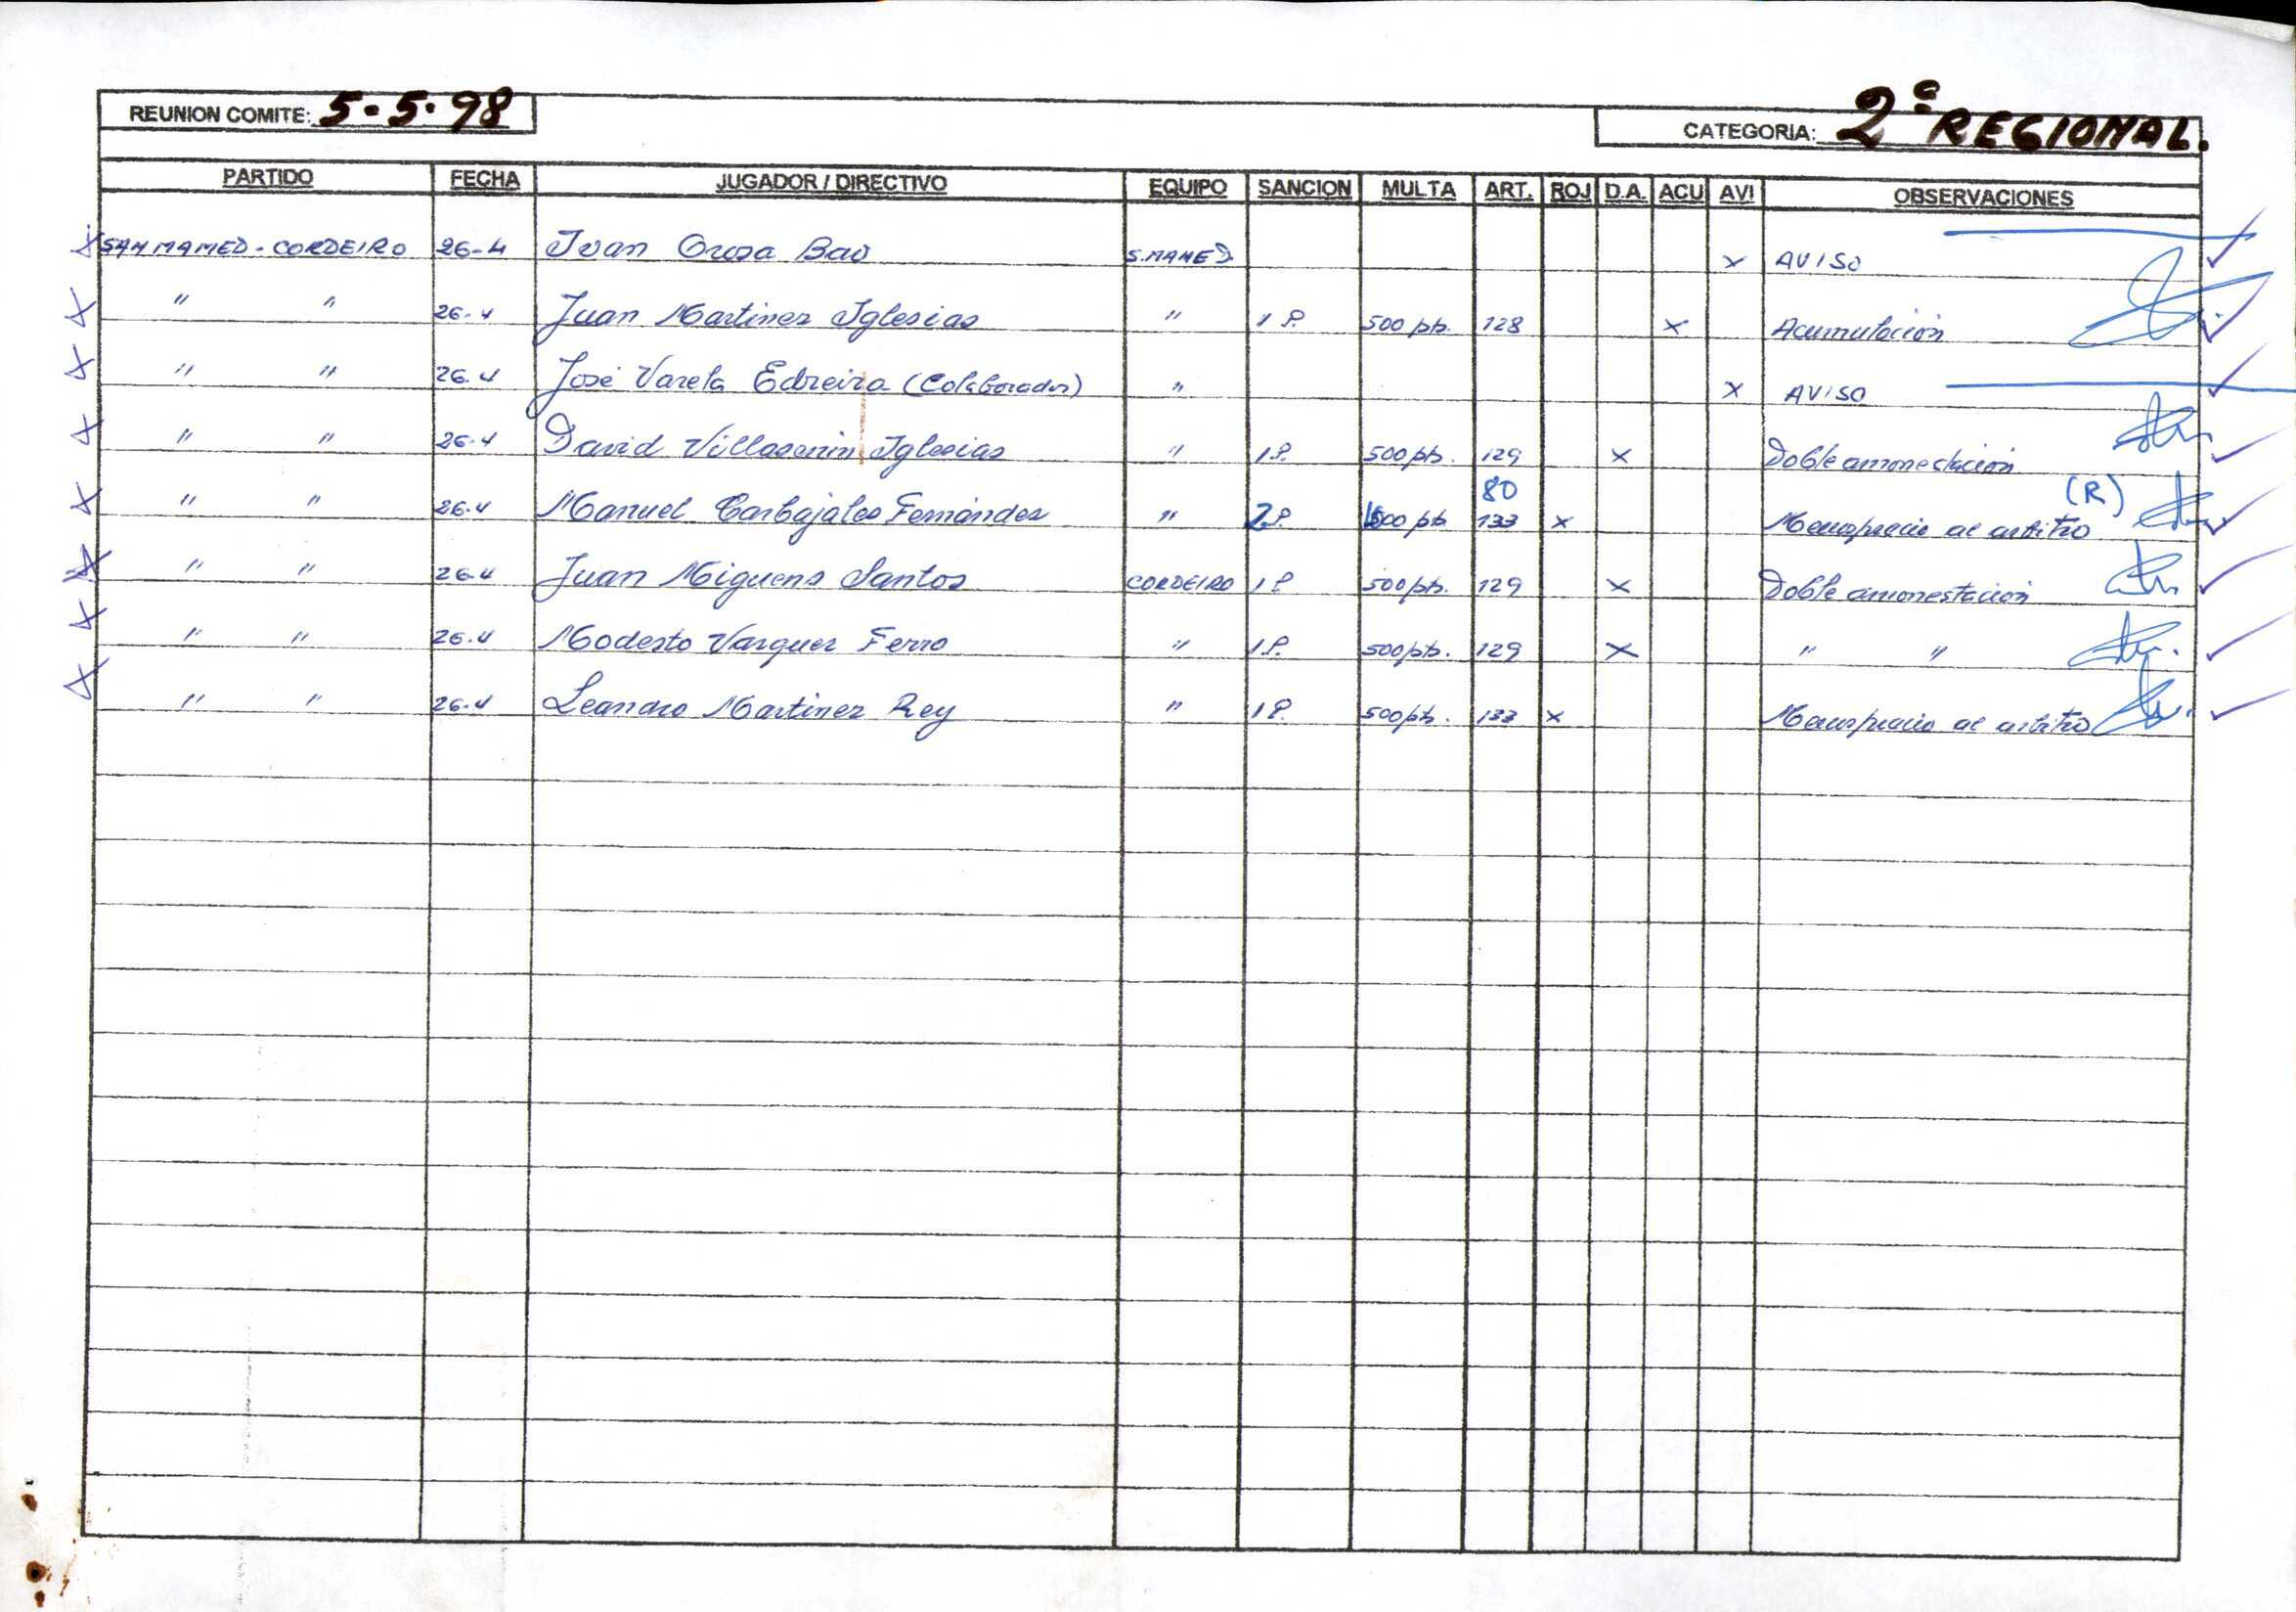 REUNION COMITE: 5-5-98
CATEGORIA: 2ª REGIONAL.
PARTIDO FECHA JUGADOR / DIRECTIVO EQUIPO SANCION MULTA ART. ROJ D.A. ACU AVI OBSERVACIONES
x SAN MAMED - CORDEIRO 26-4 Ivan Orosa Bao S.MAMED x AVISO ✓
x " " 26-4 Juan Martinez Iglesias " 1 P. 500 pts. 128 x Acumulación ✓
x " " 26-4 José Varela Edreira (Colaborador) " x AVISO ✓
x " " 26-4 David Villasenin Iglesias " 1P. 500 pts. 129 x Doble amonestación ✓
80 (R)
x " " 26-4 Manuel Carbajales Fernández " 2P. 1500 pts 133 x Menosprecio al arbitro ✓
x " " 26-4 Juan Miguens Santos CORDEIRO 1 P 500 pts. 129 x Doble amonestación ✓
x " " 26-4 Modesto Varquez Ferro " 1P. 500 pts. 129 x " " ✓
x " " 26-4 Leandro Martinez Rey " 1P. 500 pts. 133 x Menosprecio al arbitro ✓